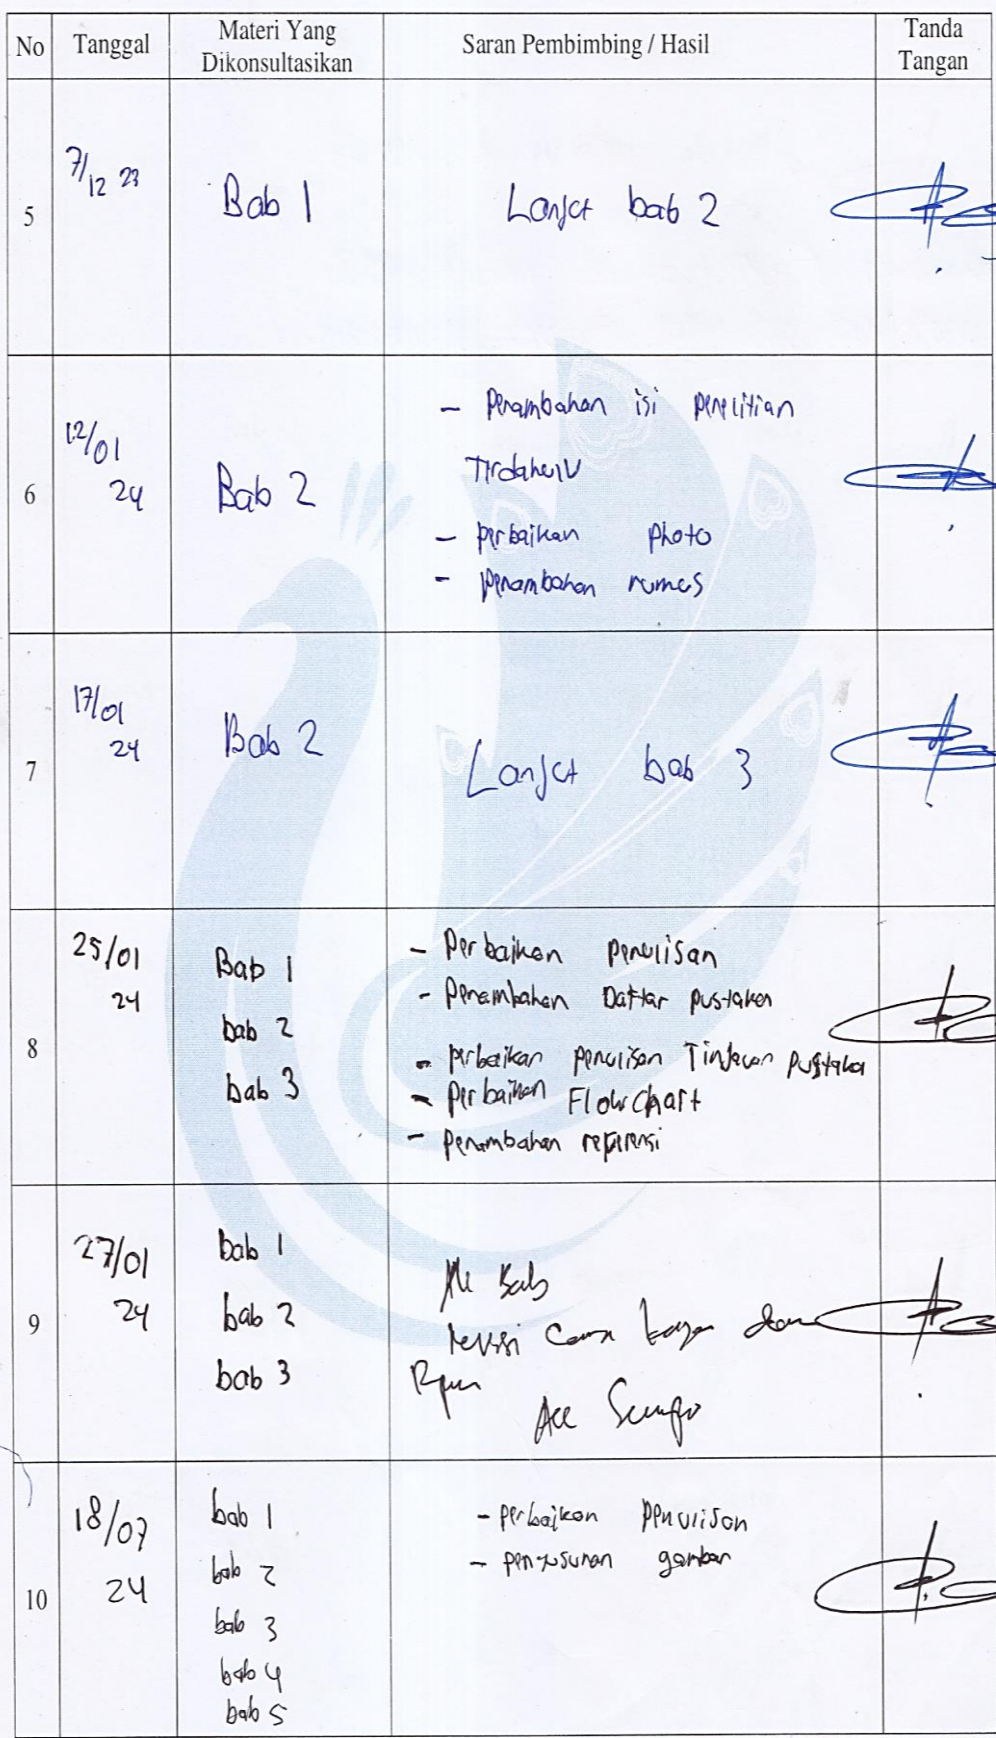 No Tanggal Materi Yang Dikonsultasikan Saran Pembimbing / Hasil Tanda Tangan
5 7/12 23 Bab 1 Lanjut bab 2
6 12/01 24 Bab 2
- Penambahan isi penelitian
Terdahulu
- perbaikan photo
- penambahan rumus
7 17/01 24 Bab 2 Lanjut bab 3
8 25/01 24
Bab 1
bab 2
bab 3
- Perbaikan penulisan
- Penambahan Daftar pustaka
- perbaikan penulisan Tinjauan pustaka
- Perbaikan Flowchart
- penambahan referensi
9 27/01 24
bab 1
bab 2
bab 3
revisi
dan
Acc
10 18/07 24
bab 1
bab 2
bab 3
bab 4
bab 5
- perbaikan penulisan
- penyusunan gambar